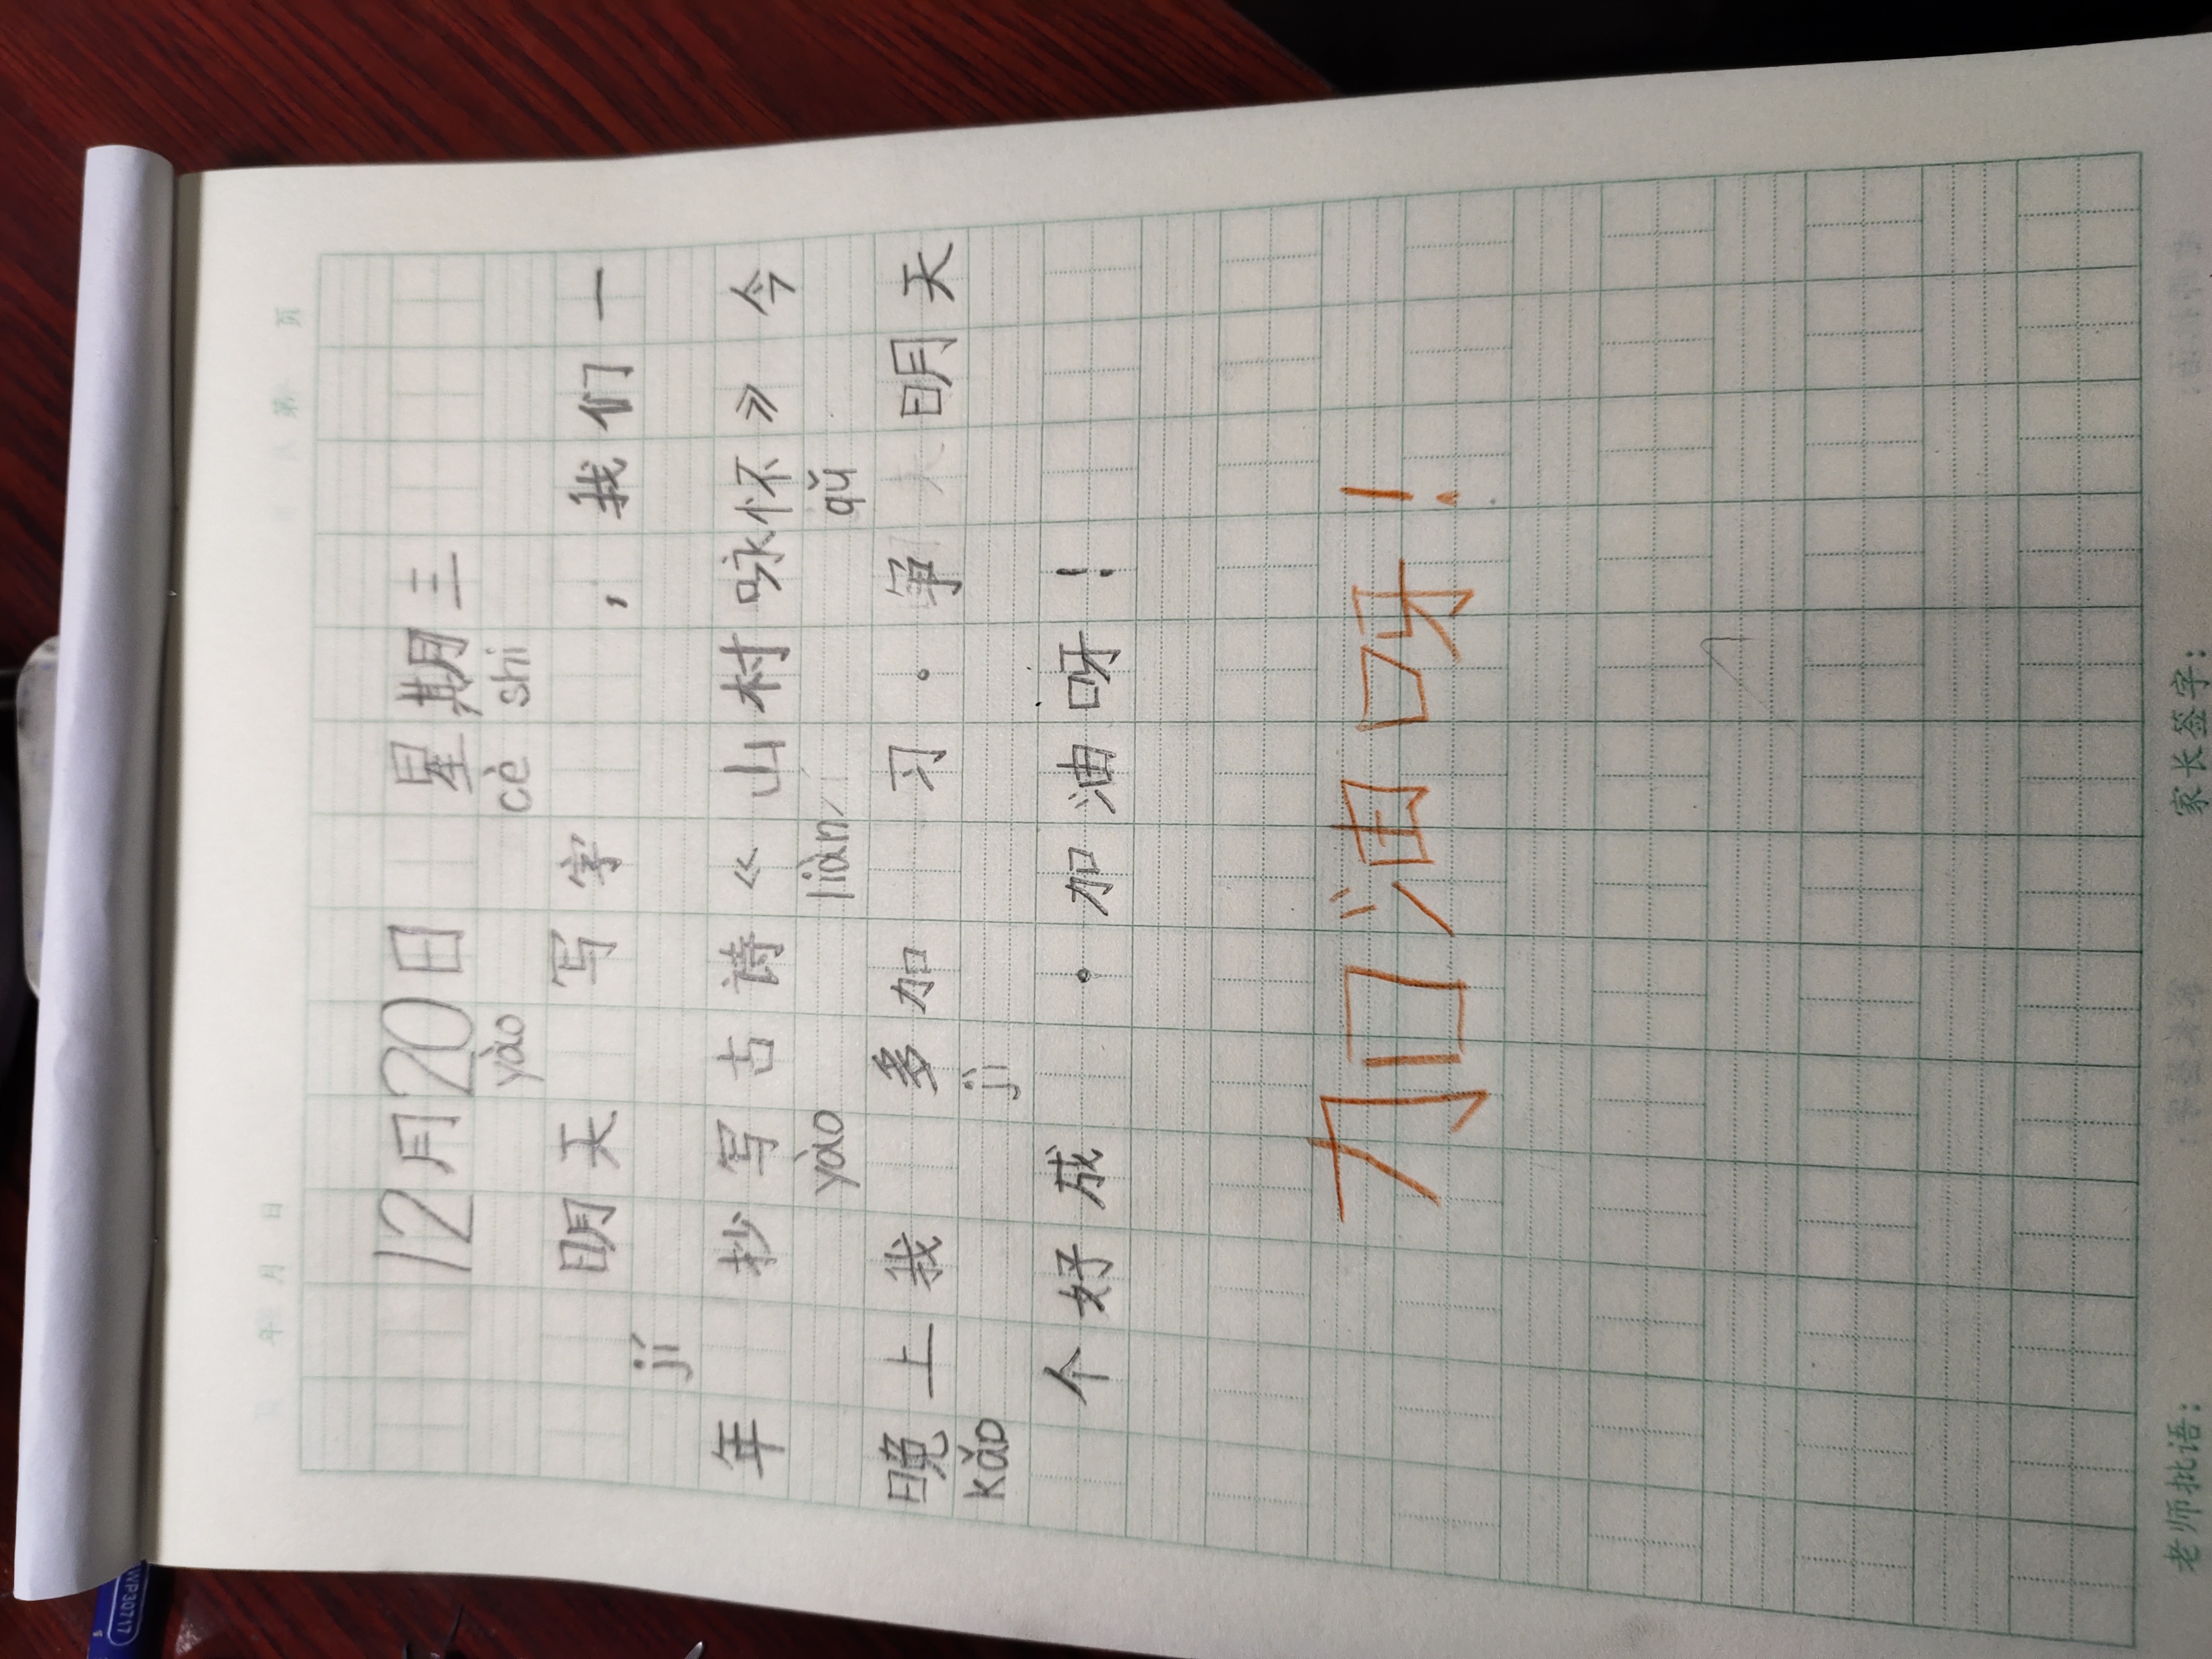 年 月 日 第 页
12月20日 星期三
yào cè shì
明天 写字 ，我们一
jí
年 抄写古诗《山村咏怀》今
yào liàn qǔ
晚上我 多加 习。争 明天
kǎo jì
个好成 。加油呀！
加油呀！
老师批语： 家长签字：
WP30717